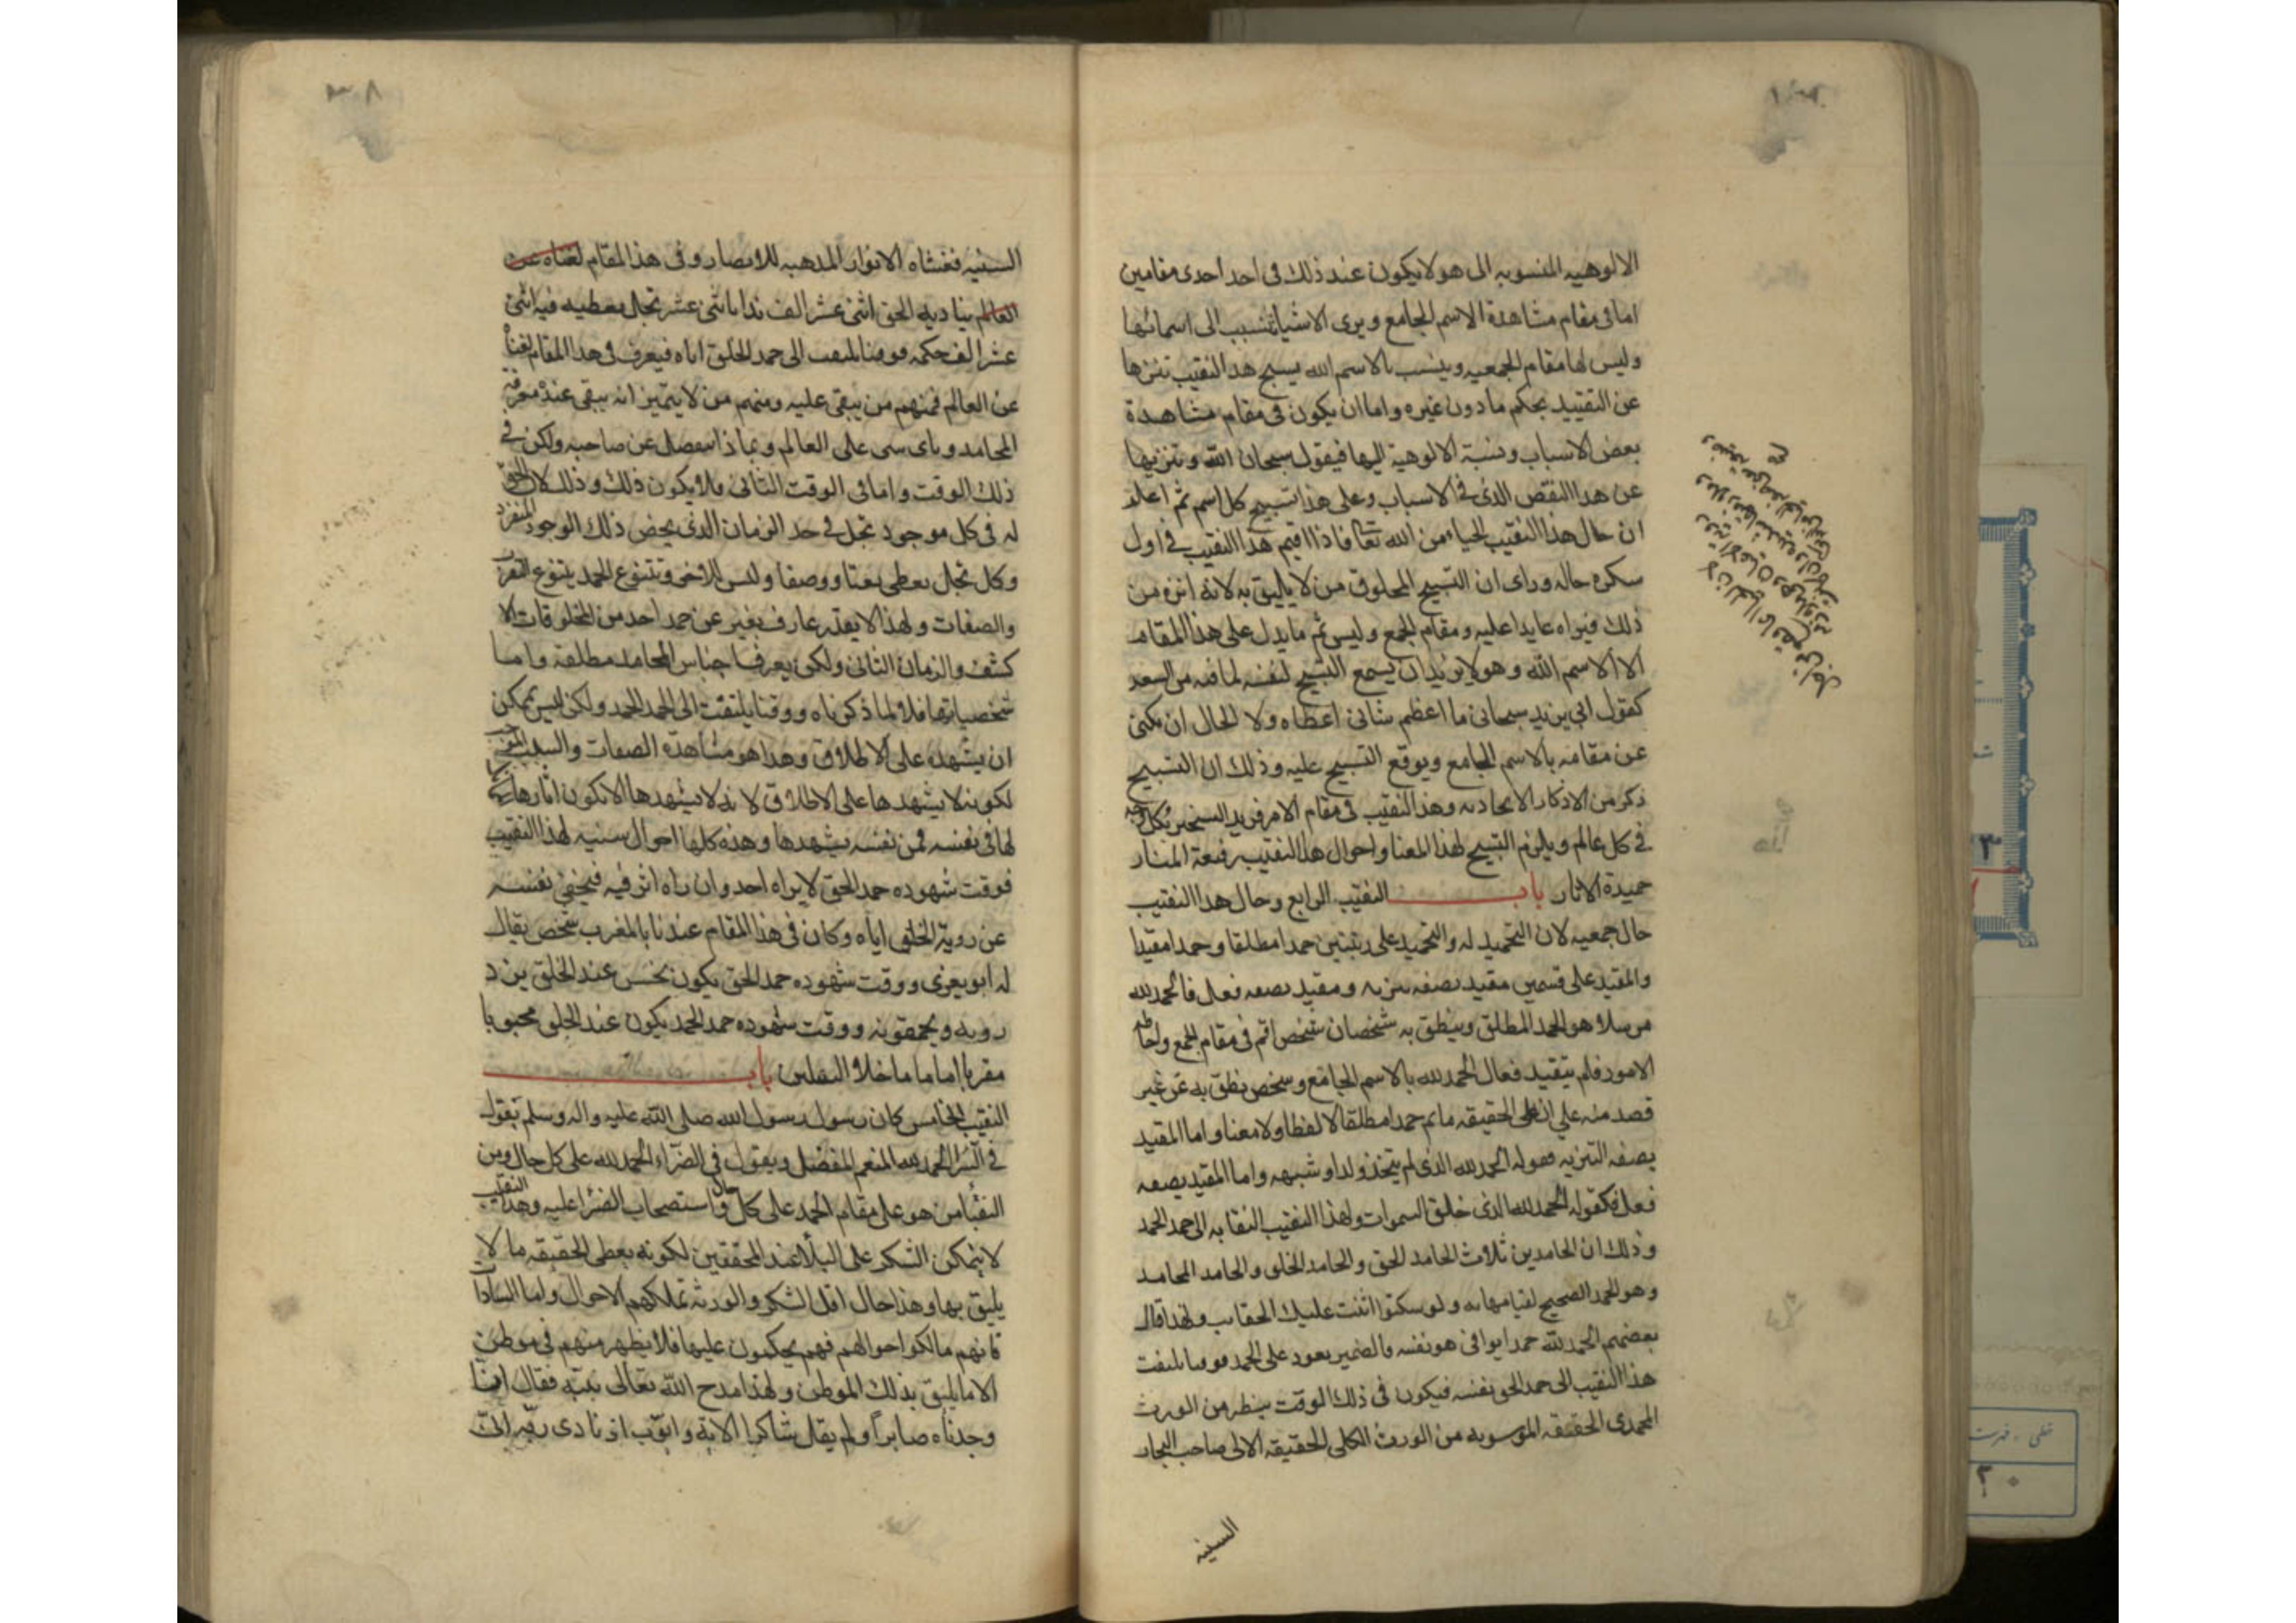 الالوهيه المنسوبه الى هو لا يكون عند ذلك فى احد احدى مقامين
اما فى مقام مشاهدة الاسم الجامع ويرى الاشيا تنسب الى اسمائها
وليس لها مقام الجمعيه وينسب بالاسم الله يسبح هذا النقيب تنزها
عن التقييد بحكم ما دون غيره واما ان يكون فى مقام مشاهدة
بعض الاسباب ونسبة الالوهية اليها فيقول سبحان الله وتنزيها
عن هذا النقص الذى فى الاسباب وعلى هذا تسبيح كل اسم ثم اعلم
ان حال هذا النقيب الحياء من الله تعا فاذا اقيم هذا النقيب فى اول
سكره حاله وراى ان التسبيح المخلوق من لا يليق به لانه انزه من
ذلك فيراه عايدا عليه ومقام الجمع وليس ثم ما يدل على هذا المقام
الا الاسم الله وهو لا يريد ان يسمع التسبيح لنفسه لما فيه من
كقول ابى يزيد سبحانى ما اعظم شانى اعطاه ولا الحال ان يكنى
عن مقامه بالاسم الجامع ويوقع التسبيح عليه وذلك ان التسبيح
ذكر من الاذكار الاتحاديه وهذا النقيب فى مقام الامر
فى كل عالم ويلزم التسبيح لهذا المعنا واحوال هذا النقيب رفيعة المنار
حميدة الاثار باب النقيب الرابع وحال هذا النقيب
حال جمعيه لان التحميد له والتحميد على رتبتين حمدا مطلقا وحمدا مقيدا
والمقيد على قسمين مقيد بصفه تنزيه ومقيد بصفه فعل فالحمد لله
مرسلا هو الحمد المطلق وينطق به شخصان شخص اقم فى مقام الجمع واحاطه
الامور فلم يتقيد فعال الحمد لله بالاسم الجامع وشخص نطق به عن غير
قصد منه على ان على الحقيقه ما ثم حمدا مطلقا لا لفظا ولا معنا واما المقيد
بصفه التنزيه فقوله الحمد لله الذى لم يتخذ ولدا وشبهه واما المقيد بصفه
فعل فكقوله الحمد لله الذى خلق السموات ولهذا النقيب النقابه الى حمد الحمد
وذلك ان الحامدين ثلاث الحامد الحق والحامد الخلق والحامد المحامد
وهو الحمد الصحيح لقيامها به ولو سكتوا اثنت عليك الحقايب ولهذا قال
بعضهم الحمد لله حمدا يوافى هو نفسه فالضمير يعود على الحمد فوقتا يلتفت
هذا النقيب الى حمد الحق نفسه فيكون فى ذلك الوقت ينظر من الورث
المحمدى الحقيقه الموسويه من الورث الكلى الحقيقه الالى صاحب البحار
السنيه
السنيه فغشاه الانوار المذهبه للابصار وفى هذا المقام لغناه عن
العالم يناديه الحق اثنى عشر الف ندا باثنى عشر تجل يعطيه فيه اثنى
عشر الف حكمه فوقتا يلتفت الى حمد الخلق اياه فيعرف فى هذا المقام لغناه
عن العالم فمنهم من يبقى عليه ومنهم من لا يتميز انه يبقى عنده معرفة
المحامد وباى سى على العالم وبماذا ينفصل عن صاحبه ولكن فى
ذلك الوقت واما فى الوقت الثانى فلا يكون ذلك وذلك لان الحق
له فى كل موجود تجل فى حد الزمان الذى يخص ذلك الوجود المنفرد
وكل تجل يعطى نعتا ووصفا وليس للاخر وتتنوع الحمد بتنوع
والصفات ولهذا لا يقدر عارف يغير عن حمد احد من المخلوقات الا
كشف والزمان الثانى ولكن يعرف اجناس المحامد مطلقة واما
شخصياتها فلا لما ذكرناه ووقتا يلتفت الى الحمد الحمد ولكن ليس يمكن
ان يشهده على الاطلاق وهذا هو مشاهدة الصفات والسلب
لكونه لا يشهدها على الاطلاق لانه لا يشهدها الا يكون اثارها
لها فى نفسه فمن نفسه يشهدها وهذه كلها احوال سنيه لهذا النقيب
فوقت شهوده حمد الحق لا يراه احد وان راه اثر فيه فيخفى نفسه
عن روية الخلق اياه وكان فى هذا المقام عندنا بالمغرب شخص يقال
له ابو يعزى ووقت شهوده حمد الحق يكون بخس عند الخلق يزد
رويه ويحمقونه ووقت شهوده حمد الحمد يكون عند الخلق محبوبا
مقربا اما ما ما خلا الثقلين باب
النقيب الخامس كان رسول رسول الله صلى الله عليه واله وسلم يقول
فى السرا الحمد لله المنعم المفضل ويقول فى الضراء الحمد لله على كل حال ومن
النقبا من هو على مقام الحمد على كل حال واستصحاب الضرا عليه وهذا النقيب
لا يتمكن الشكر على البلا عند المحققين لكونه يعطى الحقيقه ما لا
يليق بها وهذا حال اهل الشكر والورثة تملكهم الاحوال واما السادات
فانهم مالكوا احوالهم فهم يحكمون عليها فلا يظهر منهم فى موطن
الا ما يليق بذلك الموطن ولهذا مدح الله تعالى نبيه فقال انا
وجدناه صابراً ولم يقل شاكرا الاية وايوب اذ نادى ربه انى